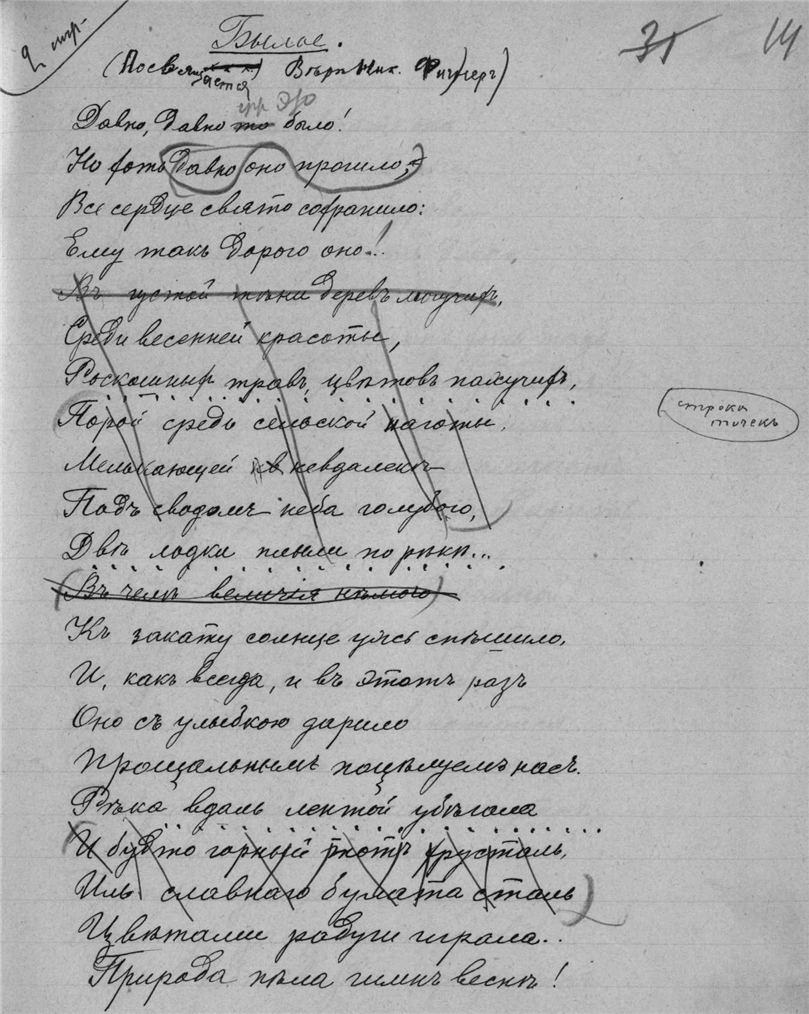 2 стр.
31 14
Былое.
(Посвящается Вѣрѣ Ник. Фигнеръ)
Давно, давно то было!
Но хоть давно оно прошло,
Все сердце свято сохранило:
Ему такъ дорого оно!..
Въ густой тѣни деревъ могучихъ,
Среди весенней красоты,
Роскошныхъ травъ, цвѣтовъ пахучихъ,
Порой средь сельской наготы,
строка
точекъ
Мелькающей невдалекѣ
Подъ сводомъ неба голубого,
Двѣ лодки плыли по рѣкѣ...
(Въ челѣ величія нѣмого)
Къ закату солнце ужъ спѣшило,
И, какъ всегда, и въ этотъ разъ
Оно съ улыбкою дарило
Прощальнымъ поцѣлуемъ насъ.
Рѣка вдаль лентой убѣгала
И будто горный хрусталь,
Иль славнаго булата сталь
Цвѣтами радуги играла..
Природа пѣла гимнъ веснѣ!